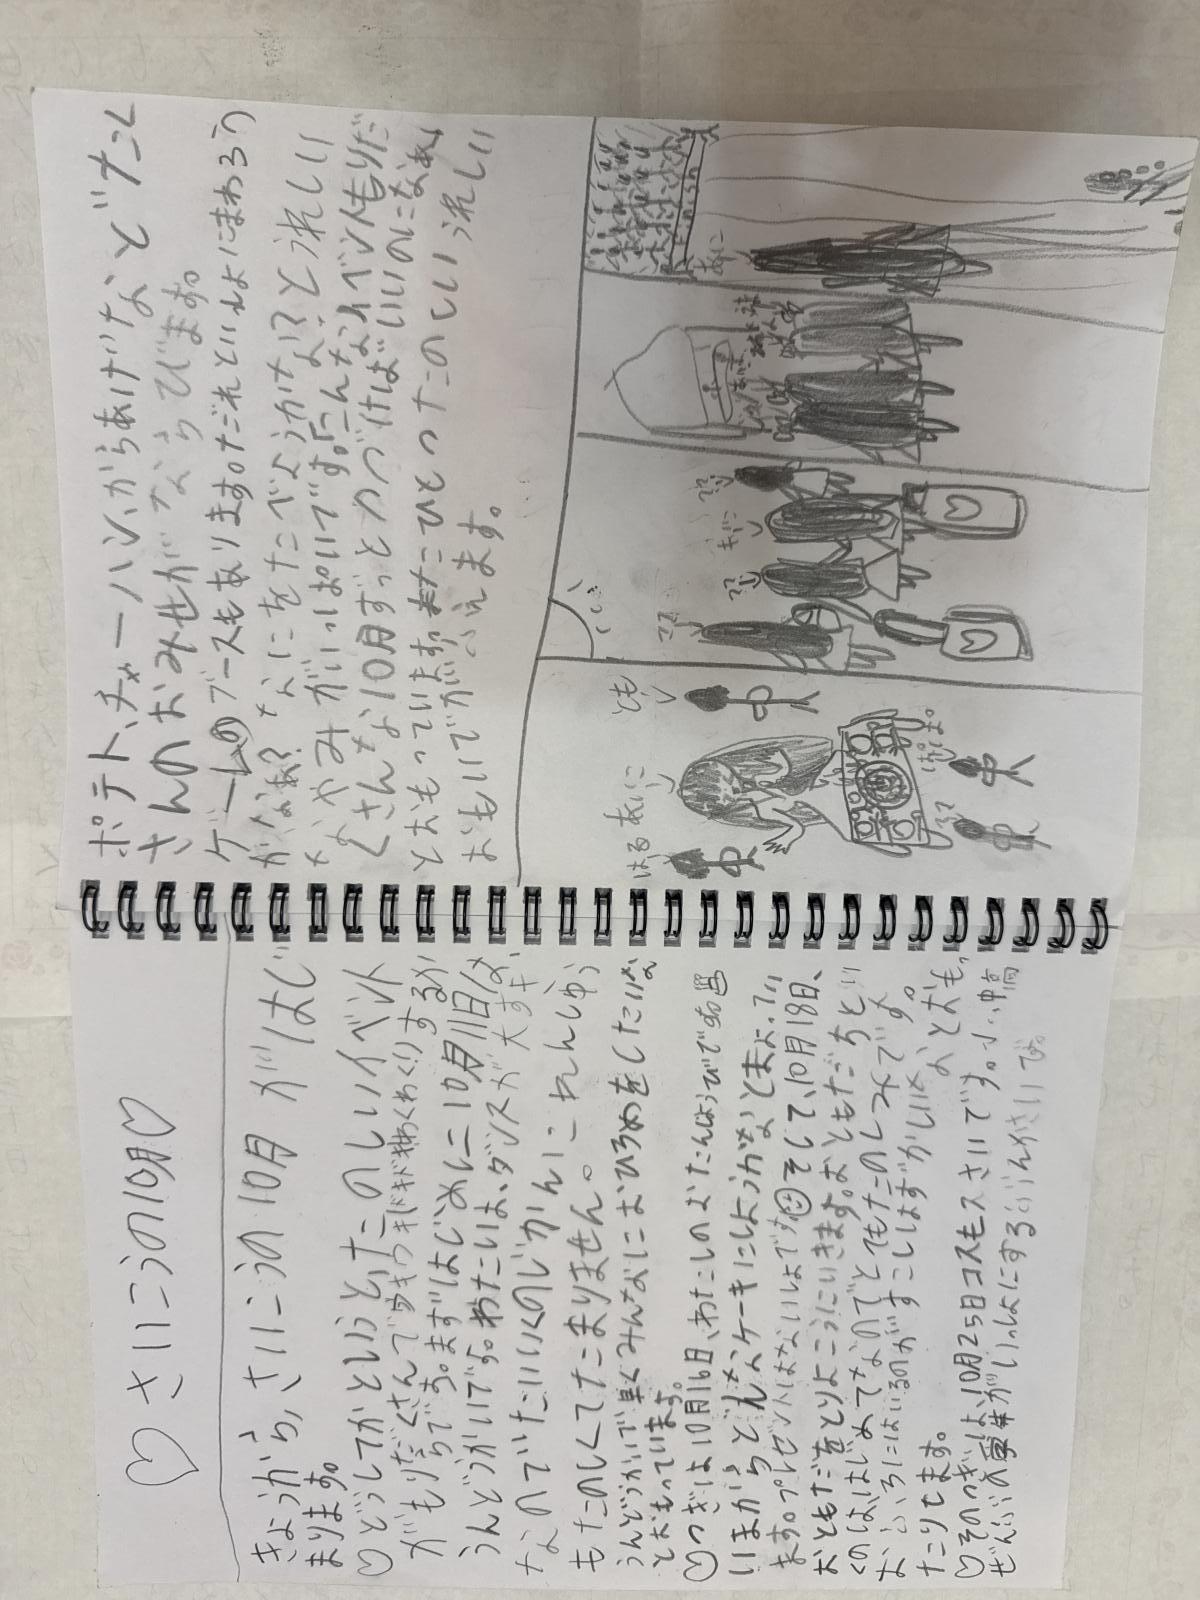 ♡さいこうの10月♡
きょうから、さいこうの10月がはじ
まります。
♡どうしてかというと、たのしいイベント
がもりだくさんでウキウキドキドキわくわくするか
らです。まずはじめに10月11日は、
うんどうかいです。わたしは、ダンスが大すき
なのでたいいくのじかんにれんしゅう
もたのしくてたまりません。
うんどうかいで早くみんなにおひろめをしたいな
とおもっています。
♡つぎは10月16日、わたしのおたんじょうびです
いまからどんなケーキにしようかな?とまよってい
ます。プレゼントはないしょですそして、10月18日、
おともだちをとりよこうにいきます。おともだちと
いくのは、はじめてなのでとてもたのしみです。
おふろにはいるのがすこしはずかしいな、とおもっ
たりします。
♡そのつぎは、10月25日コスモスさいです。小、中、高
ぜんぶの学年がいっしょにするぶんかさいです。
ポテト、チャーハン、からあげなどたく
さんのおみせがならびます。
ゲームのブースもあります。だれといっしょにまわろう
かなぁ?なにをたべようかな?とうれしい
なやみがいっぱいです。こんなイベントもりだ
くさんな10月ずっとつづけばいいのになぁ
とおもっています。またひとつたのしいうれしい
おもいでがふえます。
はるあに
とも
ママ
ぱぱ
ママ
ママ
あに
ママ
あに
Finish